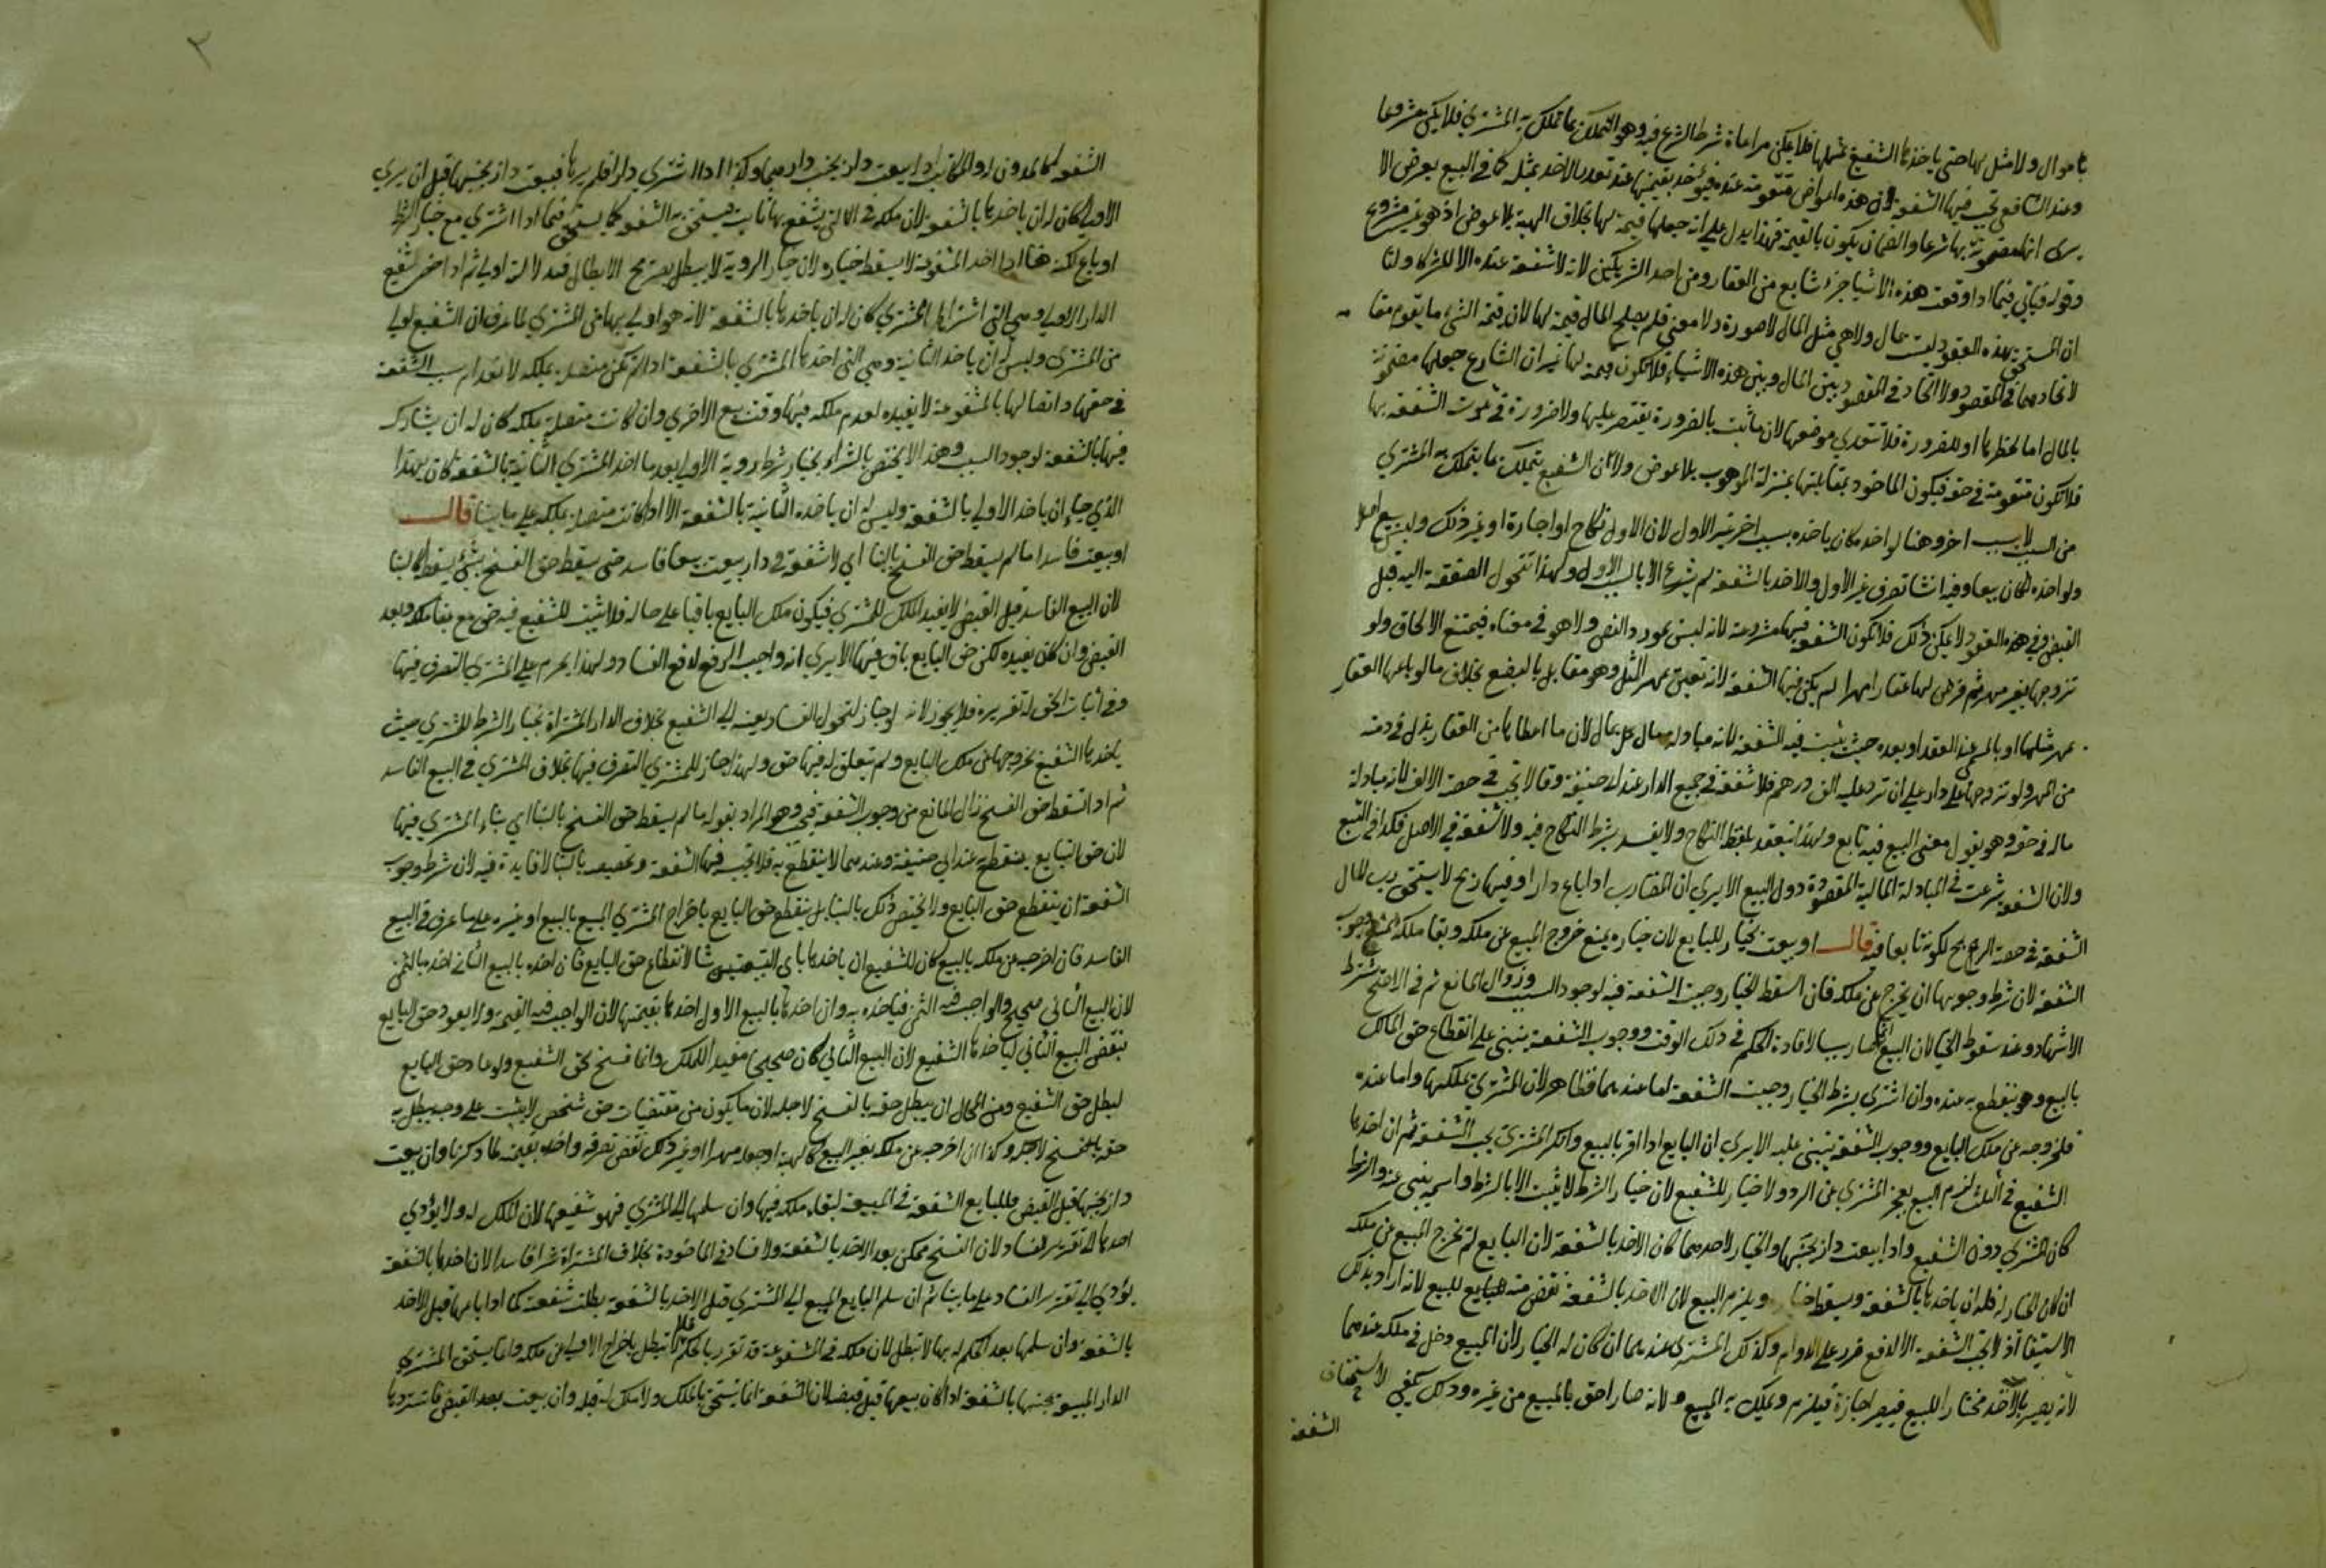 باموال ولا مثل لها حتى ياخذها الشفيع بمثلها فلا يمكن مراعاة شرط الشرع فيه وهو التملك بما تملك به المشتري فلا يكن مشروعا
وعند الشافعي تجب فيها الشفعة لان هذه الاعواض متقومة عنده فيؤخذ بقيمتها عند تعذر الاخذ بمثله كما في البيع بعرض الا
يرى انها مضمونة بها شرعا والضمان يكون بالقيمة فهذا يدل على انه جعلها قيمة لها بخلاف الهبة بلا عوض اذ هو غير مشروع
وقوله فياتي فيما اذا وقعت هذه الاشيا جزء شايع من العقار ومن احد الشريكين لانه لا شفعة عنده الا للشركا ولنا
ان المستحق بهذه العقود ليست بمال ولا هي مثل المال لا صورة ولا معنى فلم يصلح المال قيمة لها لان قيمة الشيء ما يقوم مقامه
لاتحادهما في المقصود ولا اتحاد في المقصود بين المال وبين هذه الاشياء فلا تكون قيمة لها غير ان الشارع جعلها مضمونة
بالمال اما لخطرها او للضرورة فلا تتعدي موضعها لان ما ثبت بالضرورة يقتصر عليها ولا ضرورة في ثبوت الشفعة بها
فلا تكون متقومة في حقه فيكون الماخوذ بمقابلتها بمنزلة الموهوب بلا عوض ولان الشفيع يتملك بما يتملك به المشتري
من السبب لا بسبب اخر وهنا لو اخذه كان ياخذه بسبب اخر غير الاول لان الاول نكاح او اجارة او غير ذلك وليس ببيع اصلا
ولو اخذه لكان بيعا وفيه انشا تصرف غير الاول والاخذ بالشفعة لم يشرع الا بالسبب الاول ولهذا تتحول الصفقة اليه قبل
القبض وفي هذه العقود لا يمكن ذلك فلا تكون الشفعة فيها مشروعة لانه ليس بمورد النص ولا هو في معناه فيمتنع الالحاق ولو
تزوجها بغير مهر ثم فرض لها عقارا مهرا لم يكن فيها الشفعة لانه تعيين مهر المثل وهو مقابل بالبضع بخلاف ما لو باعها العقار
بمهر مثلها او بالمسمى عند العقد او بعده حيث يثبت فيه الشفعة لانه مبادلة مال بمال لان ما اعطاها من العقار بدل في ذمته
من المهر ولو تزوجها على دار على ان ترد عليه الف درهم فلا شفعة في جميع الدار عند ابي حنيفة وقالا تجب في حصة الالف لانه مبادلة
مال في حقه وهو يقول معنى البيع فيه تابع ولهذا ينعقد بلفظ النكاح ولا يفسد بشرط النكاح فيه ولا شفعة في الاصل فكذا في التبع
ولان الشفعة شرعت في المبادلة المالية المقصودة دون التبع الا يرى ان المضارب اذا باع دارا وفيها ربح لا يستحق رب المال
الشفعة في حصة الربح لكونه تابعا فيه قال او بيعت بخيار للبايع لان خياره يمنع خروج المبيع عن ملكه وبقا ملكه يمنع وجوب
الشفعة لان شرط وجوبها ان يخرج عن ملكه فان اسقط الخيار وجبت الشفعة فيه لوجود السبب وزوال المانع ثم في الاصح يشترط
الاشهاد عند سقوط الخيار لان البيع انما صار سببا لافادة الحكم في ذلك الوقت ووجوب الشفعة ينبني على انقطاع حق المالك
بالبيع وهو ينقطع به عنده وان اشترى بشرط الخيار وجبت الشفعة اما عندهما فظاهر لان المشترى تملكها واما عنده
فلخروجه عن ملك البايع ووجوب الشفعة ينبني عليه الا يرى ان البايع اذا اقر بالبيع وانكر المشتري يجب الشفعة ثم ان اخذها
الشفيع في الثلث لزم البيع بعجز المشترى عن الرد ولا خيار للشفيع لان خيار الشرط لا يثبت الا بالشرط واسمه ينبي عنه والشرط
كان للمشتري دون الشفيع واذا بيعت دار بجنبها والخيار لاحدهما كان الاخذ بالشفعة لان البايع لم يخرج المبيع عن ملكه
ان كان الخيار له فله ان ياخذها بالشفعة ويسقط خياره ويلزم البيع لان الاخذ بالشفعة نقض منه للبيع لانه اراد بذلك
الاستيفا اذ لا تجب الشفعة الا لدفع ضرر على الدوام وكذلك المشتري عندهما ان كان له الخيار لان المبيع دخل في ملكه عندهما
لانه يصير بالاخذ مختارا للبيع فيصير اجازة فيلزم وتملك به المبيع ولانه صار احق بالمبيع من غيره وذلك يكفي لاستحقاق
الشفعة
٣
الشفعة كالماذون له والمكاتب اذا بيعت دار بجنب دارهما وكذا اذا اشترى دارا فلم يرها فبيعت دار بجنبها قبل ان يرى
الاولى كان له ان ياخذها بالشفعة لان ملكه في التي يشفع بها ثابت فيستحق به الشفعة كما يستحق فيما اذا اشترى مع خيار الشرط
او باع لكن هنا اذا اخذ المشفوعة لا يسقط خياره لان خيار الروية لا يبطل بصريح الابطال فبدلالته اولى ثم اذا حضر شفيع
الدار الاولى وهي التي اشتراها المشتري كان له ان ياخذها بالشفعة لانه هو اولى بها من المشتري لما عرف ان الشفيع اولى
من المشترى وليس له ان ياخذ الثانية وهي التي اخذها المشتري بالشفعة اذا لم تكن متصلة بملكه لانعدام سبب الشفعة
في حقها واتصالها بالمشفوعة لا يفيده لعدم ملكه فيها وقت بيع الاخرى وان كانت متصلة بملكه كان له ان يشارك
فيها بالشفعة لوجود السبب وهذا لا يختص بالشراء بخيار شرط روية الاولى بعد ما اخذ المشتري الثانية بالشفعة كان لهذا
الذي جاء ان ياخذ الاولى بالشفعة وليس له ان ياخذ الثانية بالشفعة الا اذا كانت متصلة بملكه على ما بينا قال
او بيعت فاسدا ما لم يسقط حق الفسخ بالبنا اي لا شفعة في دار بيعت بيعا فاسدا حتى يسقط حق الفسخ بشيء يسقط كالبنا
لان البيع الفاسد قبل القبض لا يفيد الملك للمشتري فيكون ملك البايع باقيا على حاله فلا يثبت للشفيع فيه حق مع بقا ملكه وبعد
القبض وان كان يفيده لكن حق البايع باق فيها الا يرى انه واجب الرفع لدفع الفساد ولهذا يحرم على المشتري التصرف فيها
وفي اثبات الحق له تقريره فلا يجوز لانه لو جاز لتحول الفساد بعينه الى الشفيع بخلاف الدار المشتراة بخيار الشرط للمشتري حيث
ياخذها الشفيع لخروجها عن ملك البايع ولم يتعلق له فيها حق ولهذا جاز للمشتري التصرف فيها بخلاف المشتري في البيع الفاسد
ثم اذا سقط حق الفسخ زال المانع من وجوب الشفعة فتجب وهو المراد بقوله ما لم يسقط حق الفسخ بالبنا اي بناء المشتري فيها
لان حق البايع ينقطع به عند ابي حنيفة وعندهما لا ينقطع به فلا تجب فيها الشفعة وتخصيصه بالبنا لا فايدة فيه لان شرط وجوب
الشفعة ان ينقطع حق البايع ولا يختص ذلك بالبنا بل ينقطع حق البايع باخراج المشترى المبيع بالبيع او غيره على ما عرف في البيع
الفاسد فان اخرجه عن ملكه بالبيع كان للشفيع ان ياخذها باي البيعتين شا لانقطاع حق البايع فان اخذه بالبيع الثاني اخذه بالثمن
لان البيع الثاني صحيح والواجب فيه الثمن فياخذه به وان اخذها بالبيع الاول اخذها بقيمتها لان الواجب فيه القيمة ولا يعود حق البايع
بنقض البيع الثاني لياخذها الشفيع لان البيع الثاني كان صحيحا مفيدا للملك وانما فسخ لحق الشفيع ولو عاد حق البايع
لبطل حق الشفيع ومن المحال ان يبطل حقه بالفسخ لاجله لان ما يكون من مقتضيات حق شخص لا يثبت على وجه يبطل به
حقه بالفسخ لاجله وكذا ان اخرجه عن ملكه بغير البيع كالهبة او جعله مهرا او غير ذلك نقض تصرفه واخذه بقيمته لما ذكرنا وان بيعت
دار بجنبها قبل القبض فللبايع الشفعة في المبيعة لبقاء ملكه فيها وان سلمها الى المشتري فهو شفيعها لان الملك له ولا يؤدي
اخذها الى تقرير الفساد لان الفسخ ممكن بعد الاخذ بالشفعة ولا فساد في الماخوذة بخلاف المشتراة شرا فاسدا لان اخذها بالشفعة
يؤدي الى تقرير الفساد على ما بينا ثم ان سلم البايع المبيع الى المشتري قبل الاخذ بالشفعة بطلت شفعته كما اذا باعها قبل الاخذ
بالشفعة وان سلمها بعد الحكم له بها لا تبطل لان ملكه في المشفوعة قد تقرر بالحكم فلا تبطل باخراج الاولى عن ملكه وانما يستحق المشترى
الدار المبيعة بجنبها بالشفعة اذا كان بيعها قبل قبضه لان الشفعة انما تستحق بالملك ولا ملك له قبله وان بيعت بعد القبض فاستردها